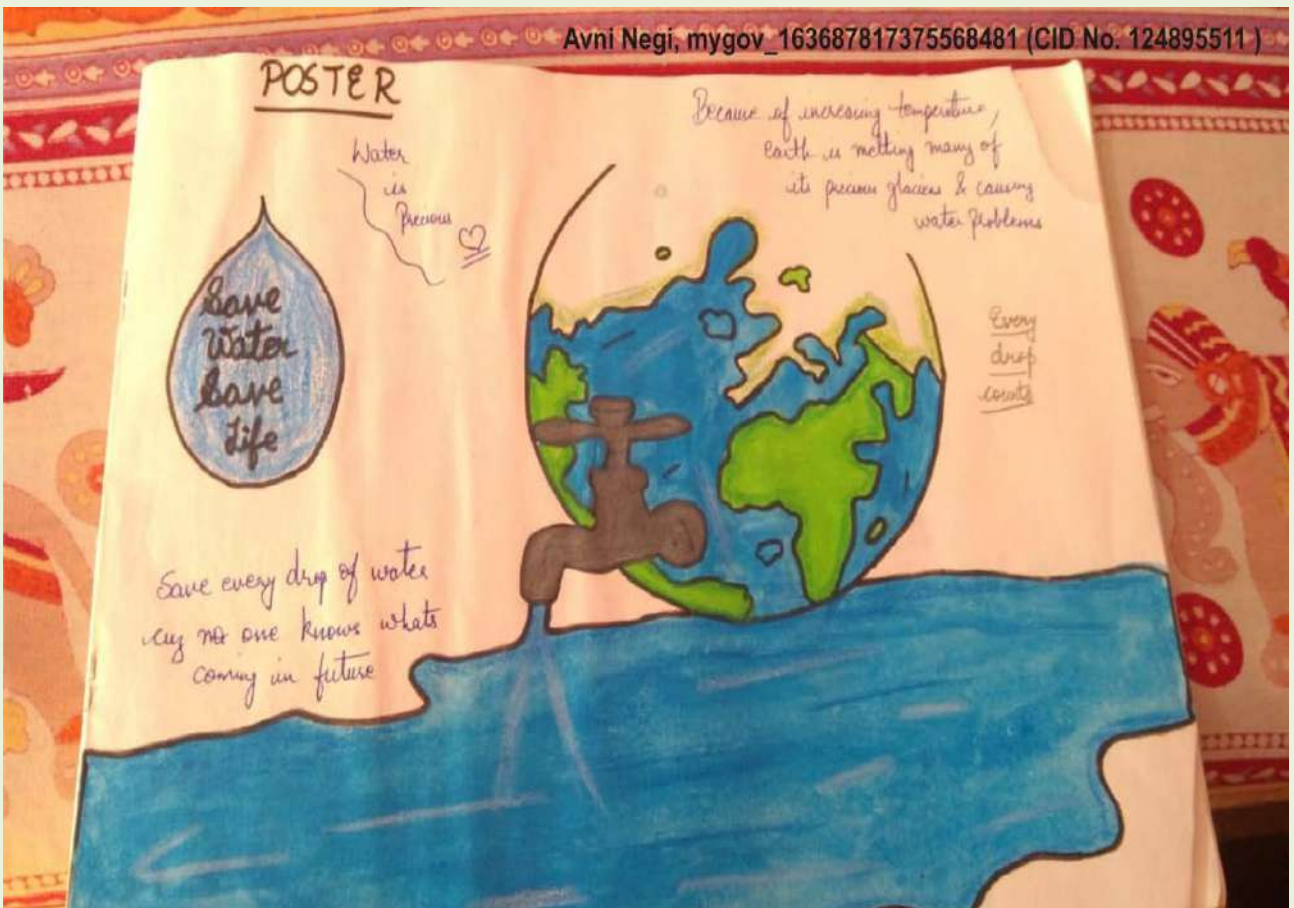 Avni Negi, mygov_163687817375568481 (CID No. 124895511 )
POSTER
Water
is
Precious
Because of increasing temperature,
Earth is melting many of
its precious glaciers & causing
water problems
Save
Water
Save
Life
Every
drop
counts
Save every drop of water
cuz no one knows whats
coming in future